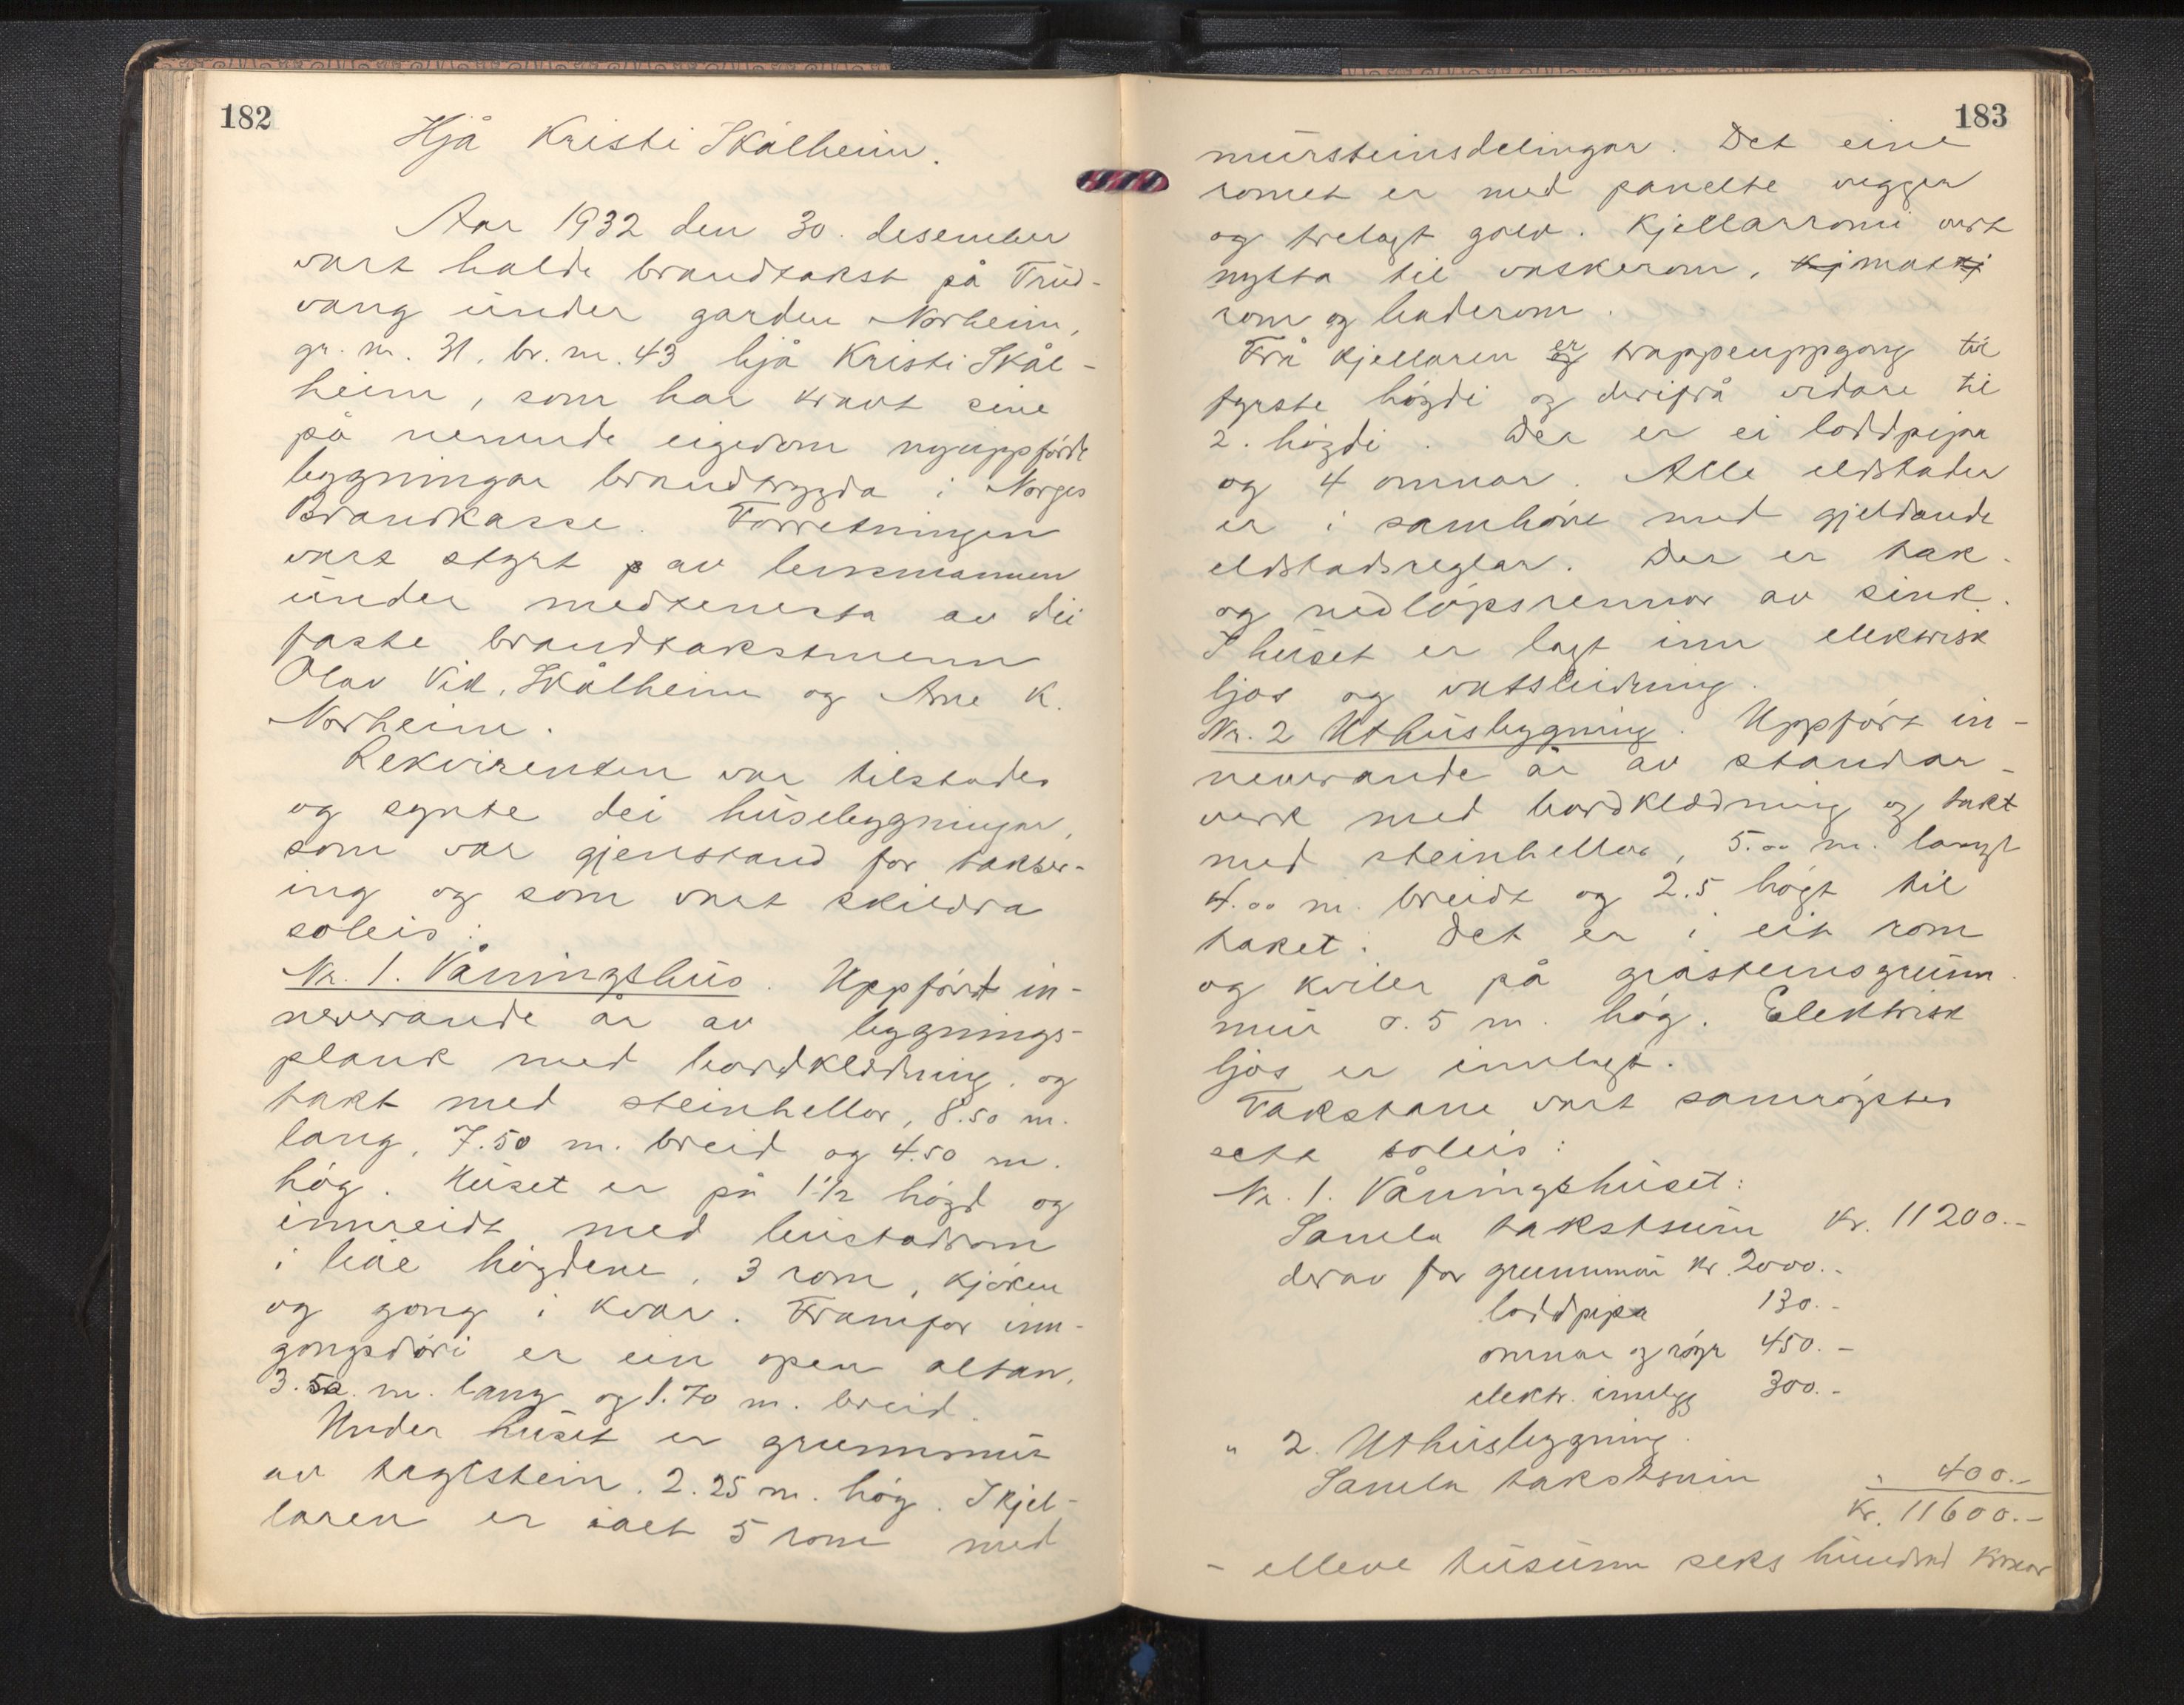 182
Hjå Kristi Skålheim.
Aar 1932 den 30. desember
vart halde brandtakst på Trud-
vang under garden Norheim,
gr. nr. 31, br. nr. 43 hjå Kristi Skål-
heim, som har kravt sine
på nemnde eigedom nyuppförde
bygningar brandtrygda i Norges
Brandkasse. Forretningen
vart styrt av lensmannen
under medtenesta av dei
faste brandtakstmenn
Olav Vik, Skålheim og Arne K.
Norheim.
Rekvirenten var tilstades
og synte dei husebygningar,
som var gjenstand for takser-
ing og som vart skildra
soleis:
Nr. 1. Våningshus. Uppfört in-
neverande år av bygnings-
plank med bordklædning og
takt med steinhellor, 8.50 m.
lang, 7.50 m. breid og 4.50 m.
hög. Huset er på 1 1/2 högd og
innreidt med bustadrom
i båe högdene, 3 rom, kjöken
og gong i kvar. Framfor inn-
gongsdöri er ein open altan,
3.50 m. lang og 1.70 m. breid.
Under huset er grunnmur
av teglstein, 2.25 m. hög. I kjel-
laren er ialt 5 rom med
183
mursteinsdelingar. Det eine
romet er med panelte vegger
og trelagt golv. Kjellarromi vert
nytta til vaskerom, mat-
rom og baderom.
Frå kjellaren er trappeuppgong til
fyrste högdi og derifrå vidare til
2. högdi. Der er ei loddpipa
og 4 omnar. Alle eldstader
er i samhöve med gjeldande
eldstadsreglar. Der er tak-
og nedlöpsrennor av sink.
I huset er lagt inn elektrisk
ljos og vatsleidning.
Nr. 2 Uthusbygning. Uppfört in-
neverande år av standar-
verk med bordklædning og takt
med steinhellor, 5.00 m. langt
4.00 m. breidt og 2.5 högt til
taket. Det er i eit rom
og kviler på gråsteinsgrunn-
mur 0.5 m. hög. Elektrisk
ljos er innlagt.
Takstane vart samröystes
sett soleis:
Nr. 1. Våningshuset:
Samla takstsum Kr. 11200.-
derav for grunnmur kr. 2000.-
loddpipa 130.-
omnar og röyr 450.-
elektr. innlegg 300.-
" 2. Uthusbygning.
Samla takstsum " 400.-
Kr. 11600.-
- elleve tusunn seks hundrad kronor